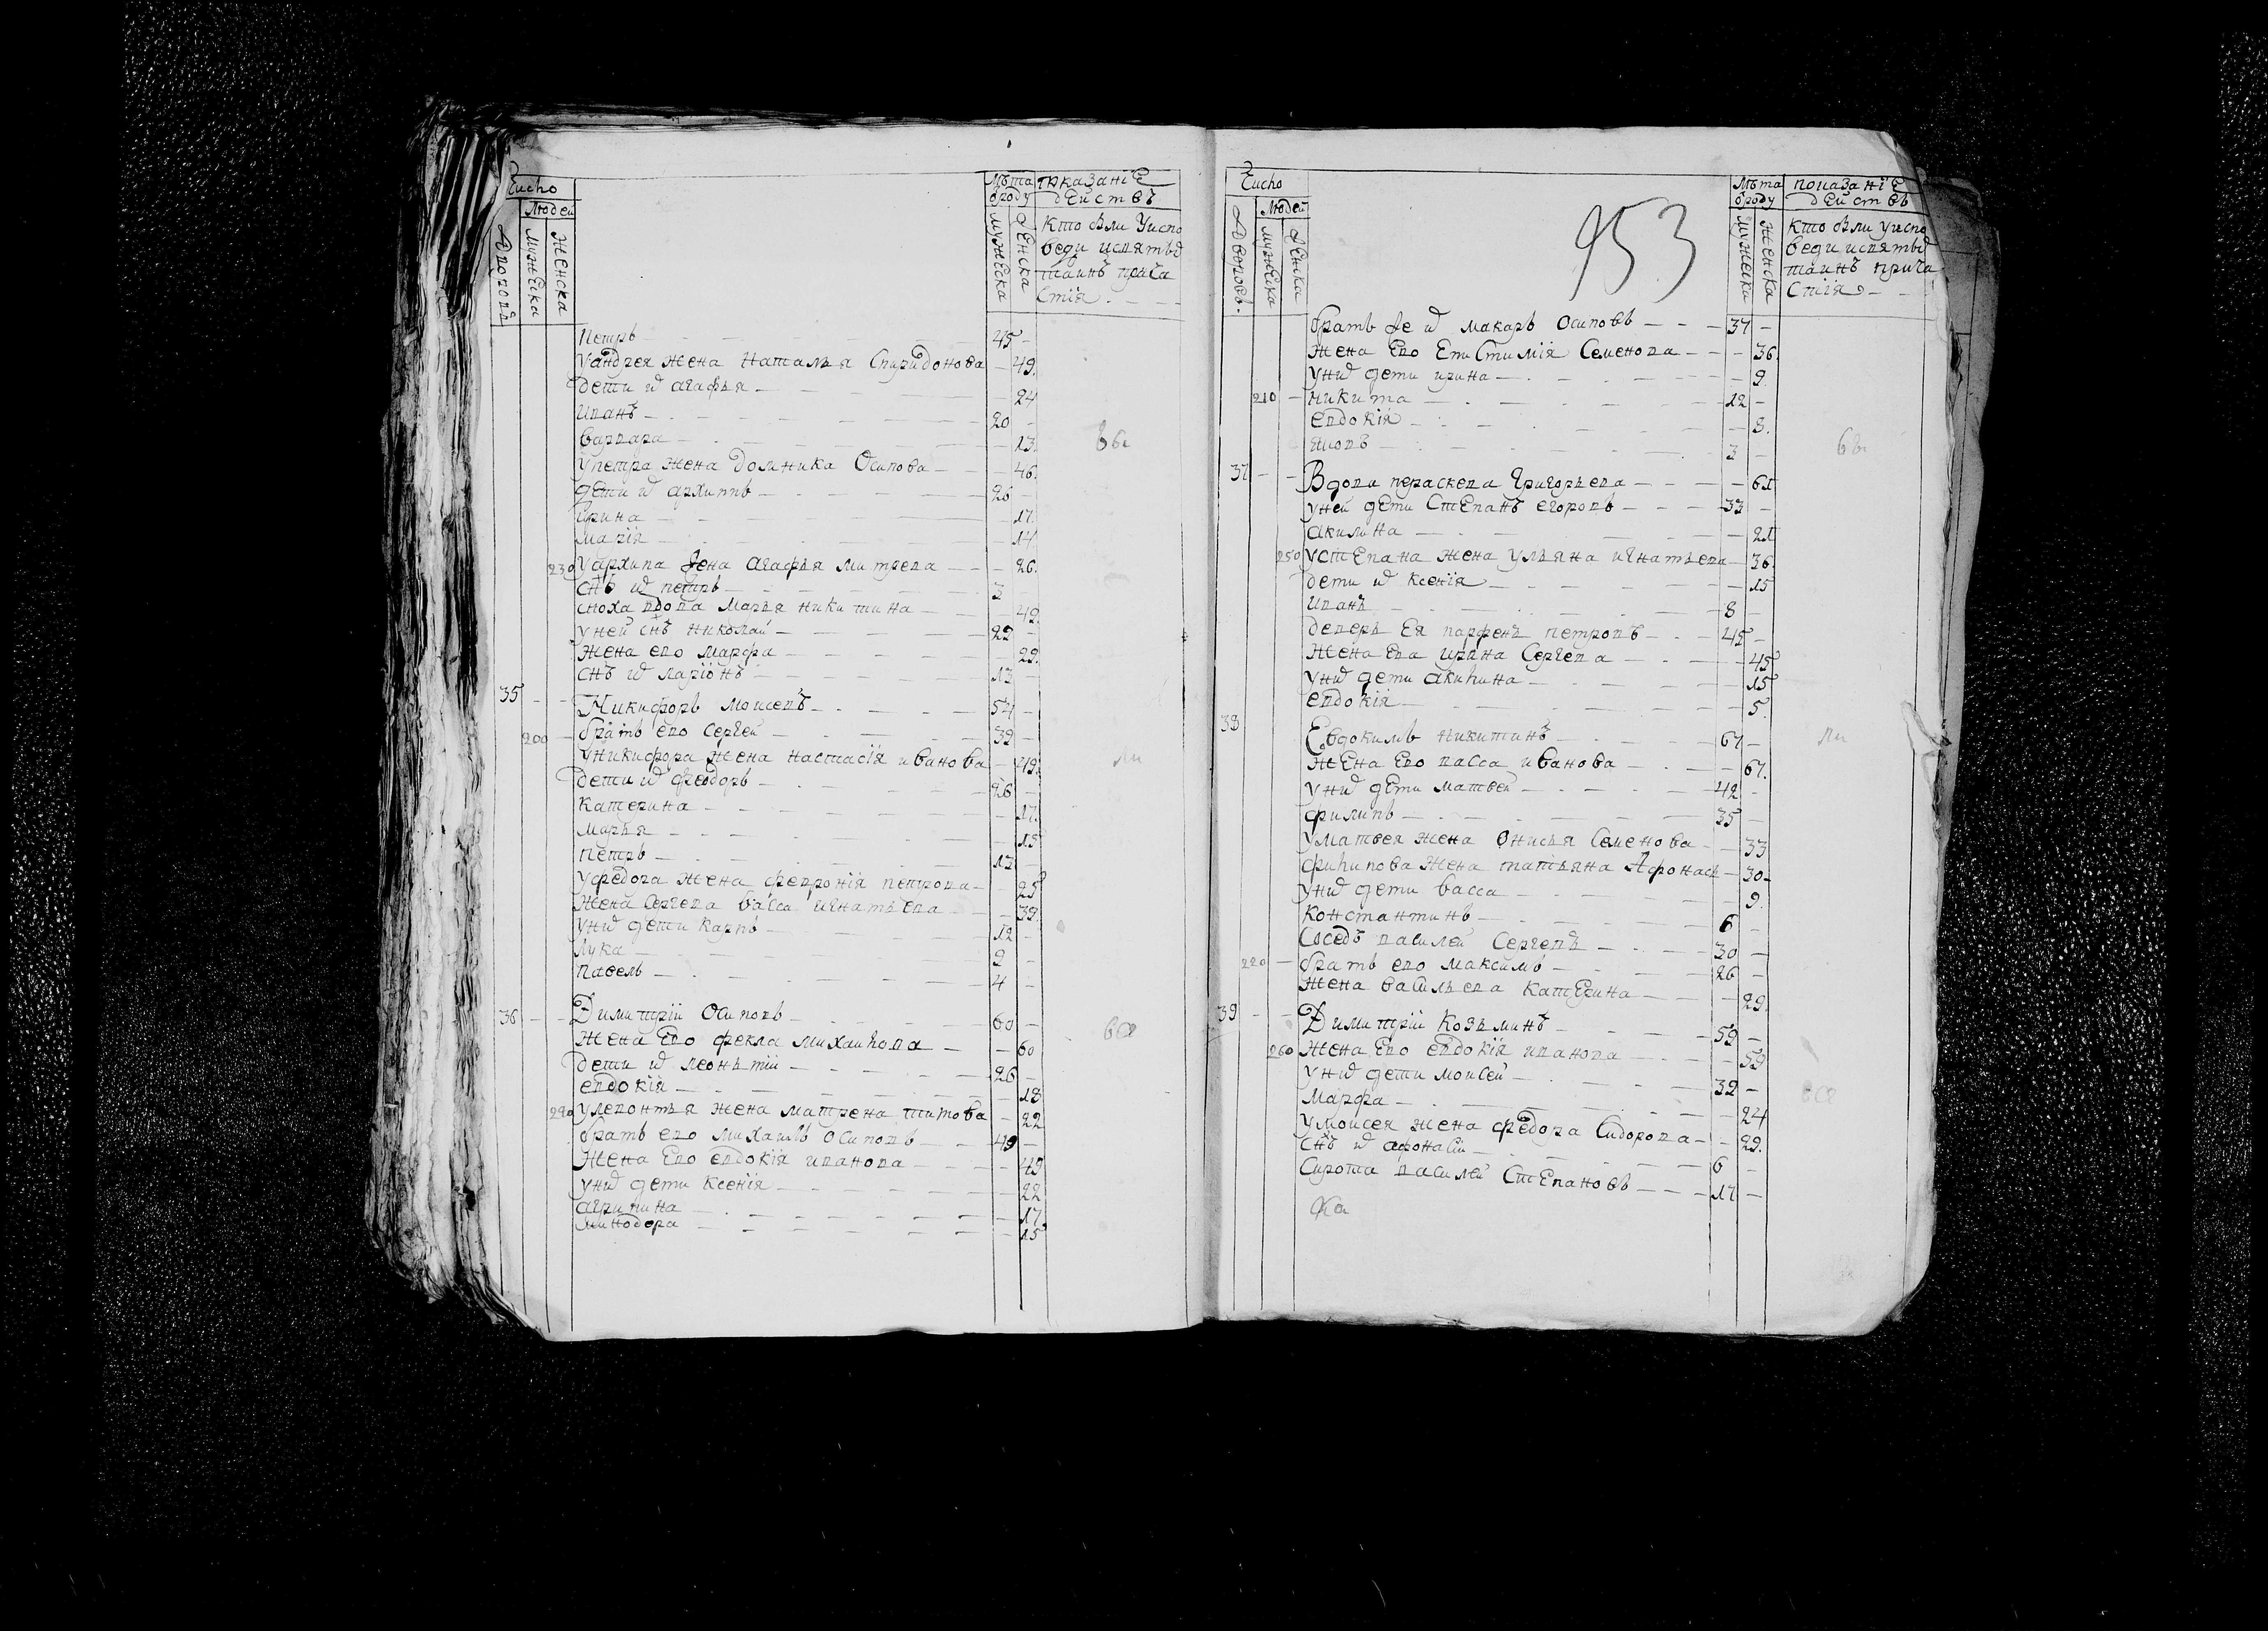 Число
Людей
Дворовъ
мужеска
женска
Лѣта
ѿроду
мужеска
женска
показанїе
дѣйствъ
кто были уиспо
веди исвятыѯ
таинъ прича
стїя
Петръ 45
Уандрея жена Наталья Спиридонова 49
дети иѯ агафья 24
Иванъ 20
Варвара 13
Упетра жена Домника Осипова 46
дети иѯ архиппъ 26
Ирина 17
Марїя 14
230 Уархипа жена агафья митрева 26
снъ иѯ петръ 3
сноха вдова Марья никитина 42
уней снъ николай 22
жена ево марфа 22
снъ иѯ ларїонъ 13
35 Никифоръ Моисевъ 54
200 братъ ево сергей 39
Уникифора жена настасїя иванова 49
дети иѯ феодоръ 26
Катерина 17
Марья 15
Петръ 13
Уфедора жена февронїя петрова 25
жена сергева васса игнатьева 39
униѯ дети карпъ 12
Лука 9
Павелъ 4
36 Димитрїй Осиповъ 60
жена ево фекла михаилова 60
дети иѯ леонътїй 26
евдокїя 18
240 улевонтья жена матрена титова 22
братъ ево михаилъ осиповъ 49
жена ево евдокїя иванова 49
униѯ дети ксенїя 22
агрипина 17
минодора 15
Число
Людей
Дворовъ
мужеска
женска
953
Лѣта
ѿроду
мужеска
женска
показанїе
дѣйствъ
кто были уиспо
веди исвятыѯ
таинъ прича
стїя
братъ же иѯ макаръ осиповъ 37
жена ево епистимїя семенова 36
униѯ дети ирина 9
210 никита 12
евдокїя 8
яковъ 3
37 Вдова параскева григорьева 61
уней дети степанъ егоровъ 33
акилина 21
250 устепана жена ульяна игнатьева 36
дети иѯ ксенїя 15
иванъ 8
деверь ея парфенъ петровъ 45
жена ева ирина сергева 45
униѯ дети акилина 15
евдокїя 5
38 Евдокимъ никитинъ 67
жена ево васса иванова 67
униѯ дети матвей 42
филипъ 35
уматвея жена онисья семенова 33
филипова жена татьяна Афонась 30
униѯ дети васса 9
константинъ 6
соседъ василей сергевъ 30
220 братъ ево максимъ 26
жена васильева катерина 29
39 Димитрїй козьминъ 59
260 жена ево евдокїя иванова 59
униѯ дети моисей 32
марфа 24
умоисея жена федора сидорова 29
снъ иѯ афонасїй 6
сирота василей степановъ 17